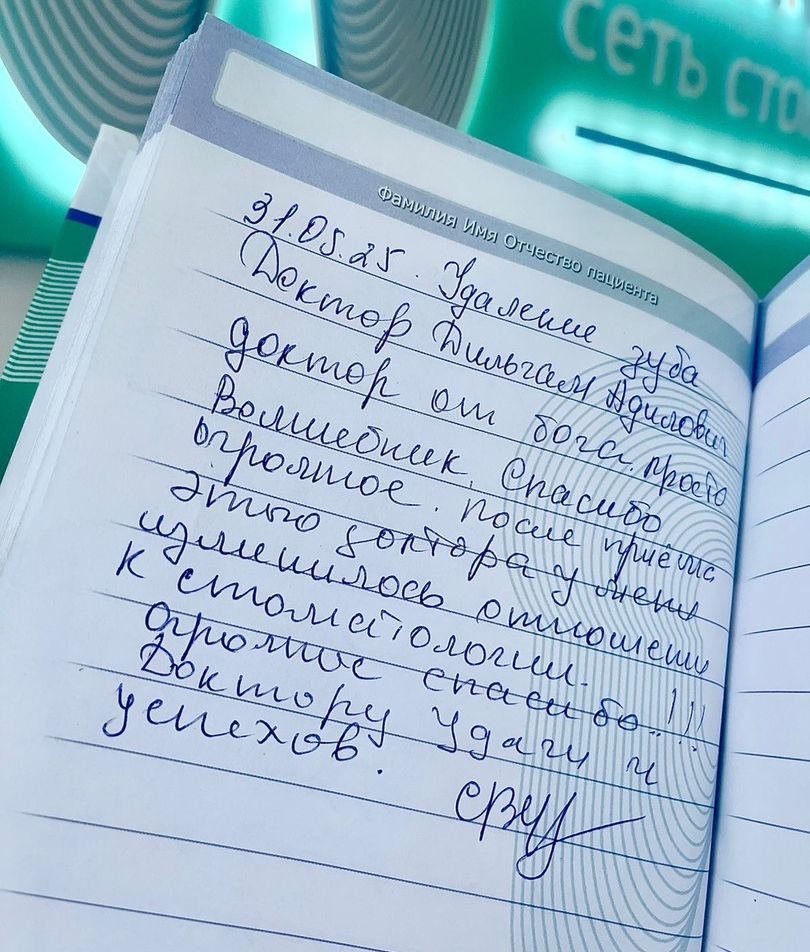 сеть сто
Фамилия Имя Отчество пациента
31.05.25. Удаление зуба
Доктор Дильгам Адилович
доктор от бога. просто
Волшебник. Спасибо
огромное. после приёма
этого доктора у меня
изменилось отношение
к стоматологии.
Огромное спасибо!!!
Доктору Удачи и
успехов.